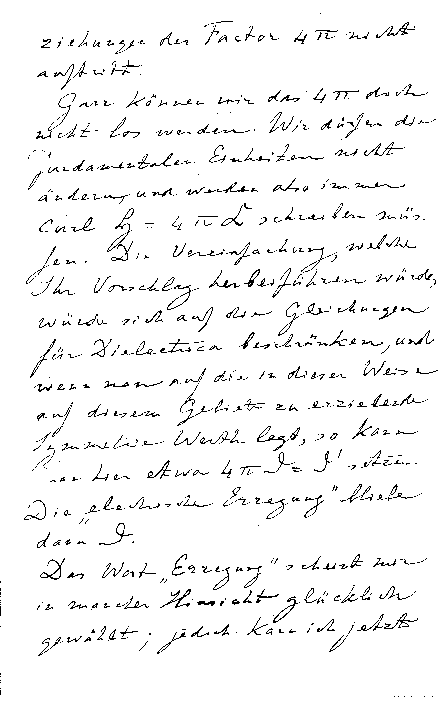 ziehungen der Factor 4π nicht
auftritt.
Ganz können wir das 4π doch
nicht los werden. Wir dürfen die
fundamentalen Einheiten nicht
ändern, und werden also immer
Curl H = 4π C schreiben müs-
sen. Die Vereinfachung, welche
Ihr Vorschlag herbeiführen würde,
würde sich auf die Gleichungen
für Dielectrica beschränken, und
wenn man auf die in dieser Weise
auf diesem Gebiet zu erzielende
Symmetrie Werth legt, so kann
man hier etwa 4π D = D' setzen.
Die „electrische Erregung" bliebe
dann D.
Das Wort „Erregung" scheint mir
in mancher Hinsicht glücklich
gewählt; jedoch kann ich jetzt